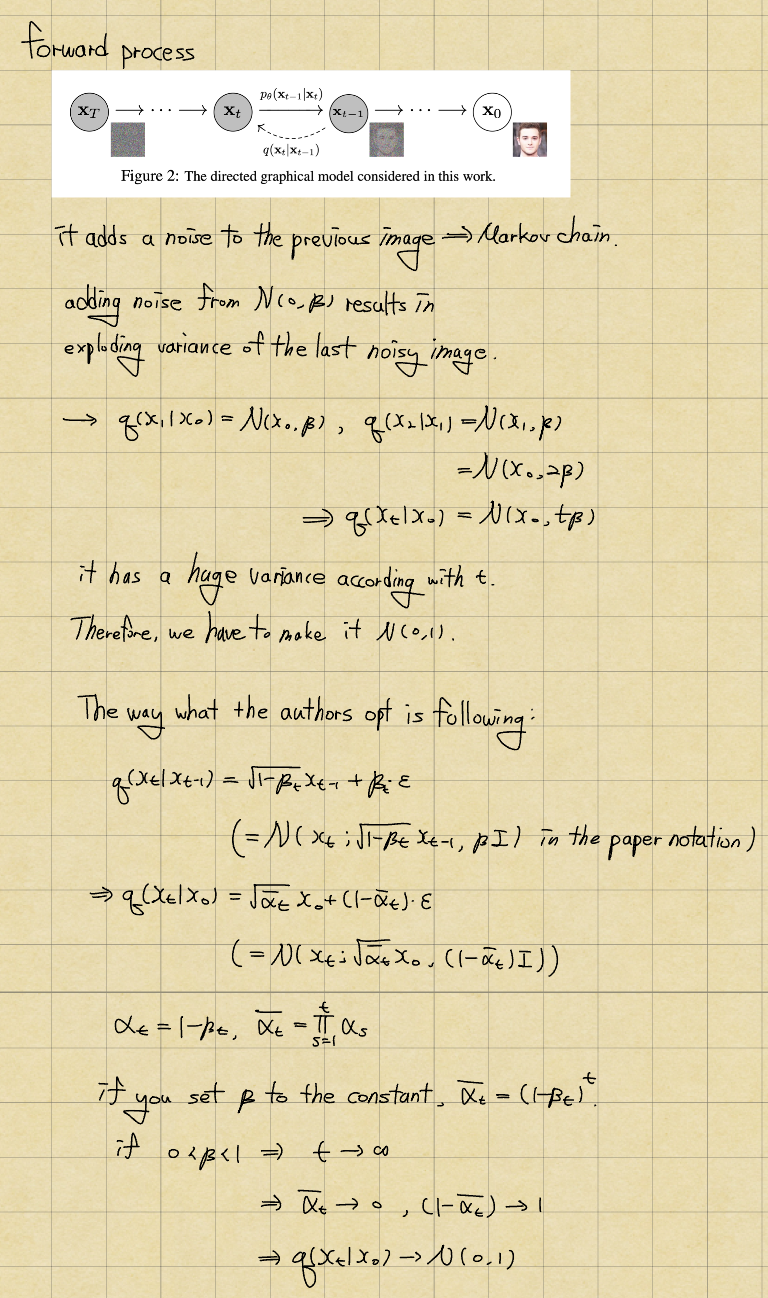 forward process
p_θ(x_{t-1}|x_t)
x_T → ··· → x_t → x_{t-1} → ··· → x_0
q(x_t|x_{t-1})
Figure 2: The directed graphical model considered in this work.
it adds a noise to the previous image ⇒ Markov chain.
adding noise from N(0, β) results in
exploding variance of the last noisy image.
→ q(x_1|x_0) = N(x_0, β), q(x_2|x_1) = N(x_1, β)
= N(x_0, 2β)
⇒ q(x_t|x_0) = N(x_0, tβ)
it has a huge variance according with t.
Therefore, we have to make it N(0,1).
The way what the authors opt is following:
q(x_t|x_{t-1}) = √(1-β_t) x_{t-1} + β_t · ε
(= N(x_t ; √(1-β_t) x_{t-1}, βI) in the paper notation)
⇒ q(x_t|x_0) = √ᾱ_t x_0 + (1-ᾱ_t) · ε
(= N(x_t ; √ᾱ_t x_0, (1-ᾱ_t)I))
α_t = 1-β_t, ᾱ_t = ∏_{s=1}^{t} α_s
if you set β to the constant, ᾱ_t = (1-β_t)^t.
if 0<β<1 ⇒ t → ∞
⇒ ᾱ_t → 0, (1-ᾱ_t) → 1
⇒ q(x_t|x_0) → N(0,1)